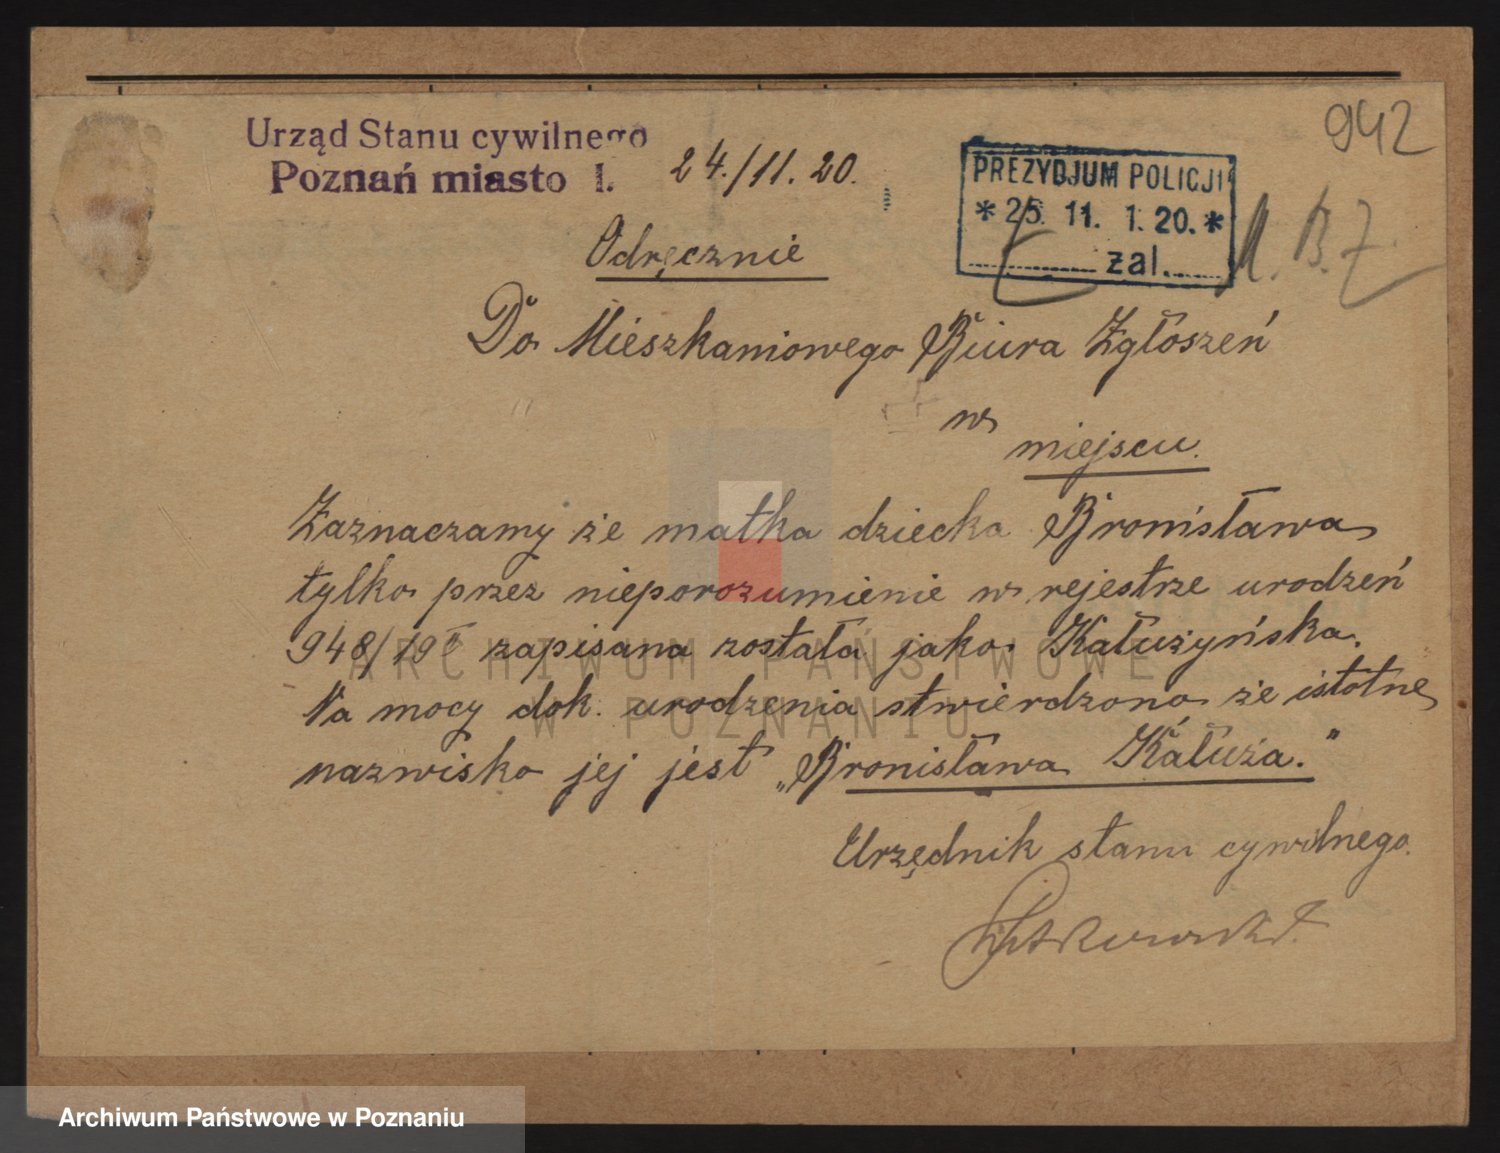 942
Urząd Stanu cywilnego
Poznań miasto I.
24./11. 20.
PREZYDJUM POLICJI
* 25. 11. 1. 20. *
zal.
M. B. Z.
Odręcznie
Do Mieszkaniowego Biura Zgłoszeń
w
miejscu.
Zaznaczamy że matka dziecka Bronisława
tylko przez nieporozumienie w rejestrze urodzeń
948/19 zapisana została jako Kałużyńska.
Na mocy dok. urodzenia stwierdzono że istotne
nazwisko jej jest „Bronisława Kałuża."
Urzędnik stanu cywilnego.
ARCHIWUM PAŃSTWOWE
W POZNANIU
Archiwum Państwowe w Poznaniu